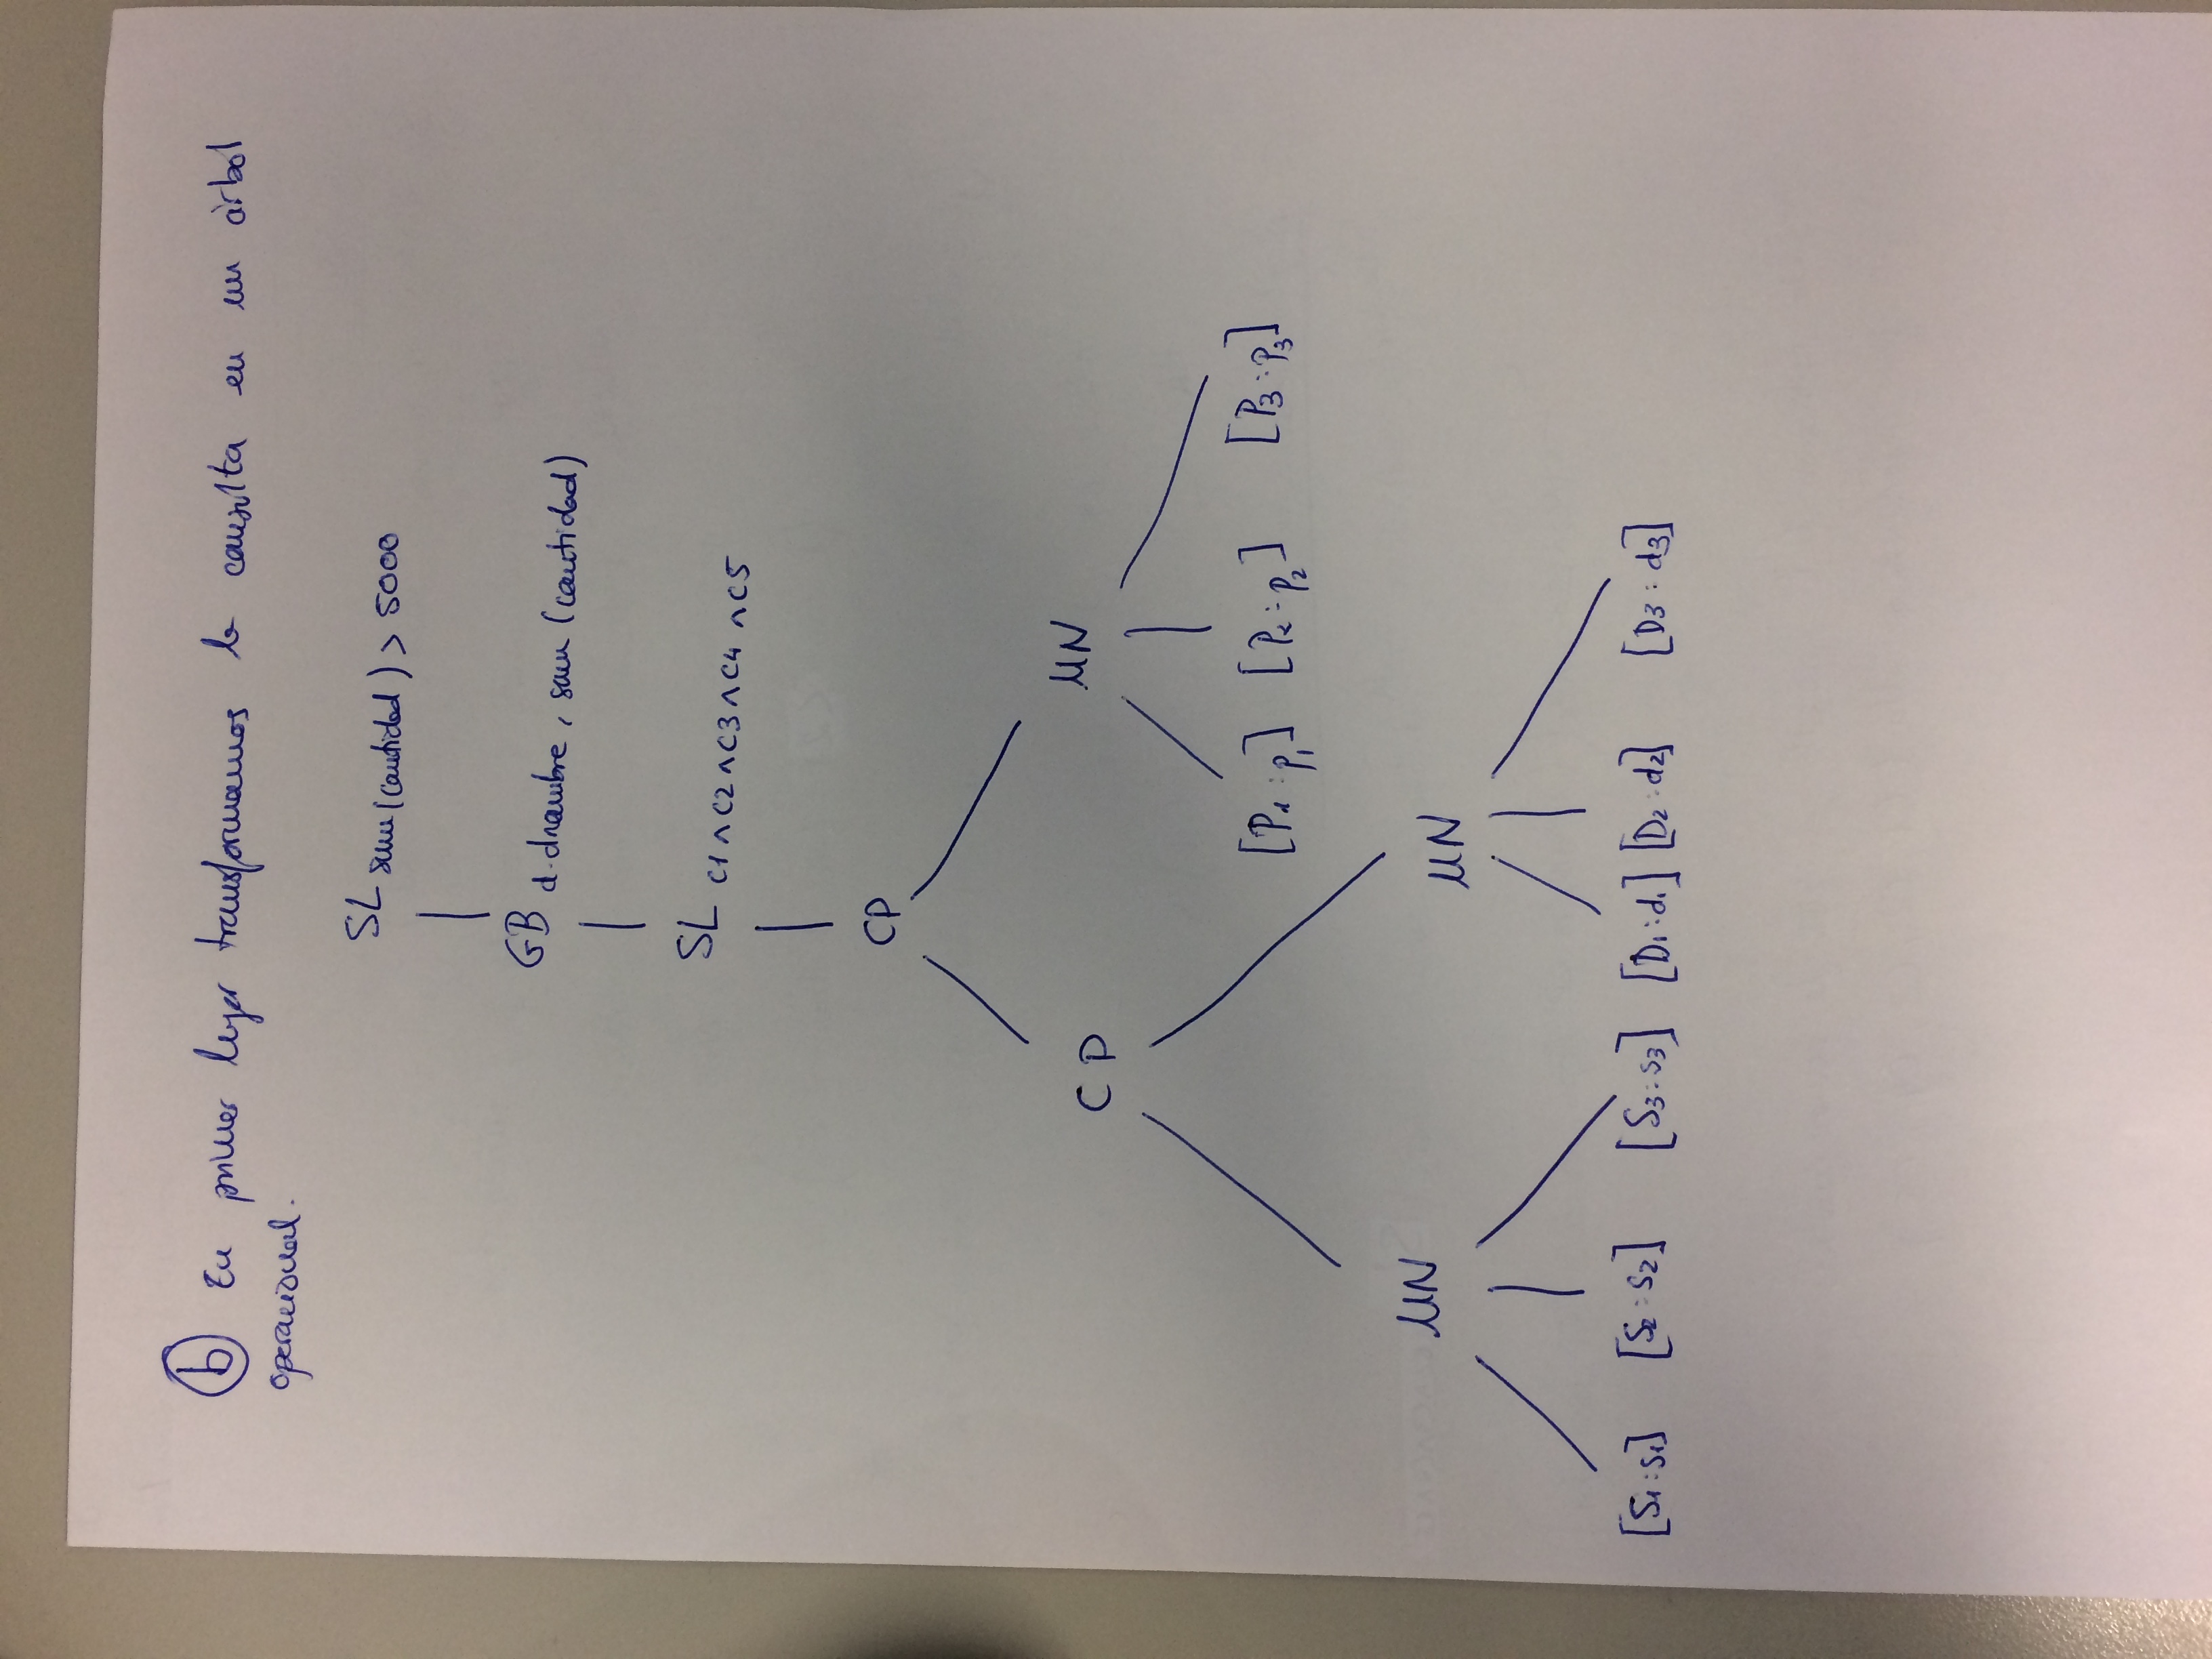 b En primer lugar transformamos la consulta en un árbol
operacional.
SL sum(cantidad) > 5000
GB d.dnombre, sum (cantidad)
SL C1 ∧ C2 ∧ C3 ∧ C4 ∧ C5
CP
CP UN
[P1 : p1] [P2 : p2] [P3 : p3]
UN UN
[S1 : s1] [S2 : s2] [S3 : s3] [D1 : d1] [D2 : d2] [D3 : d3]